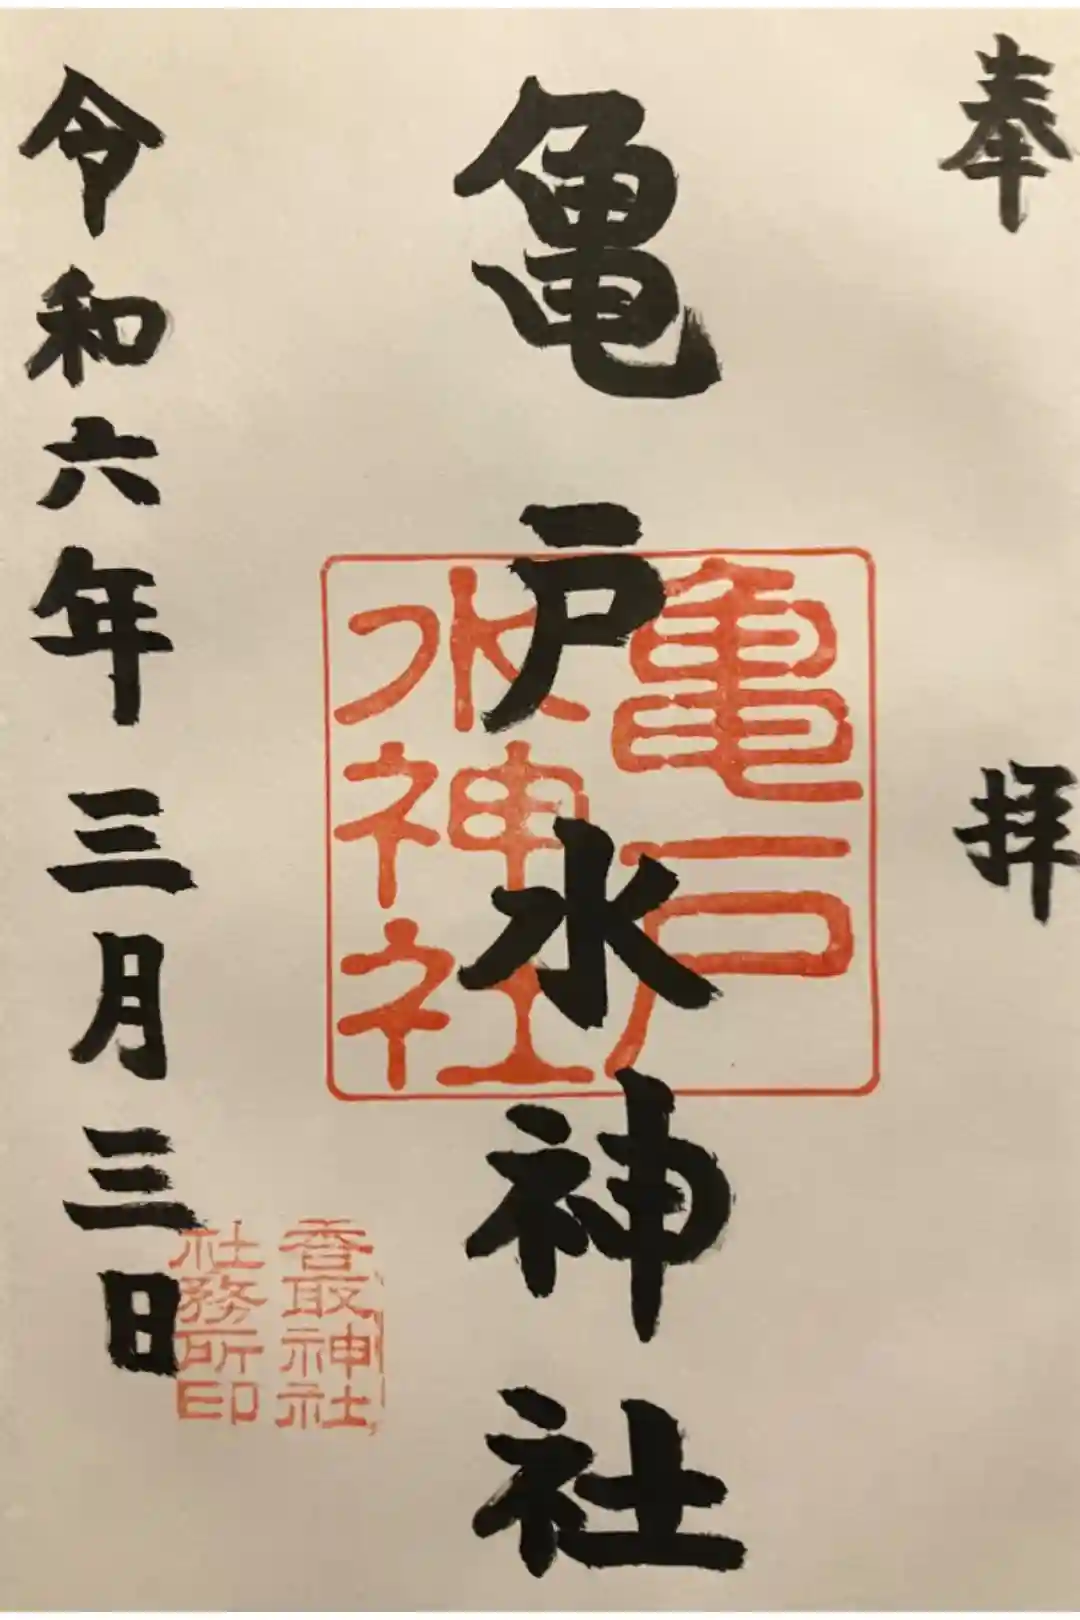 奉拝
亀戸水神社
令和六年三月三日
亀戸
水神社
香取神社
社務所印